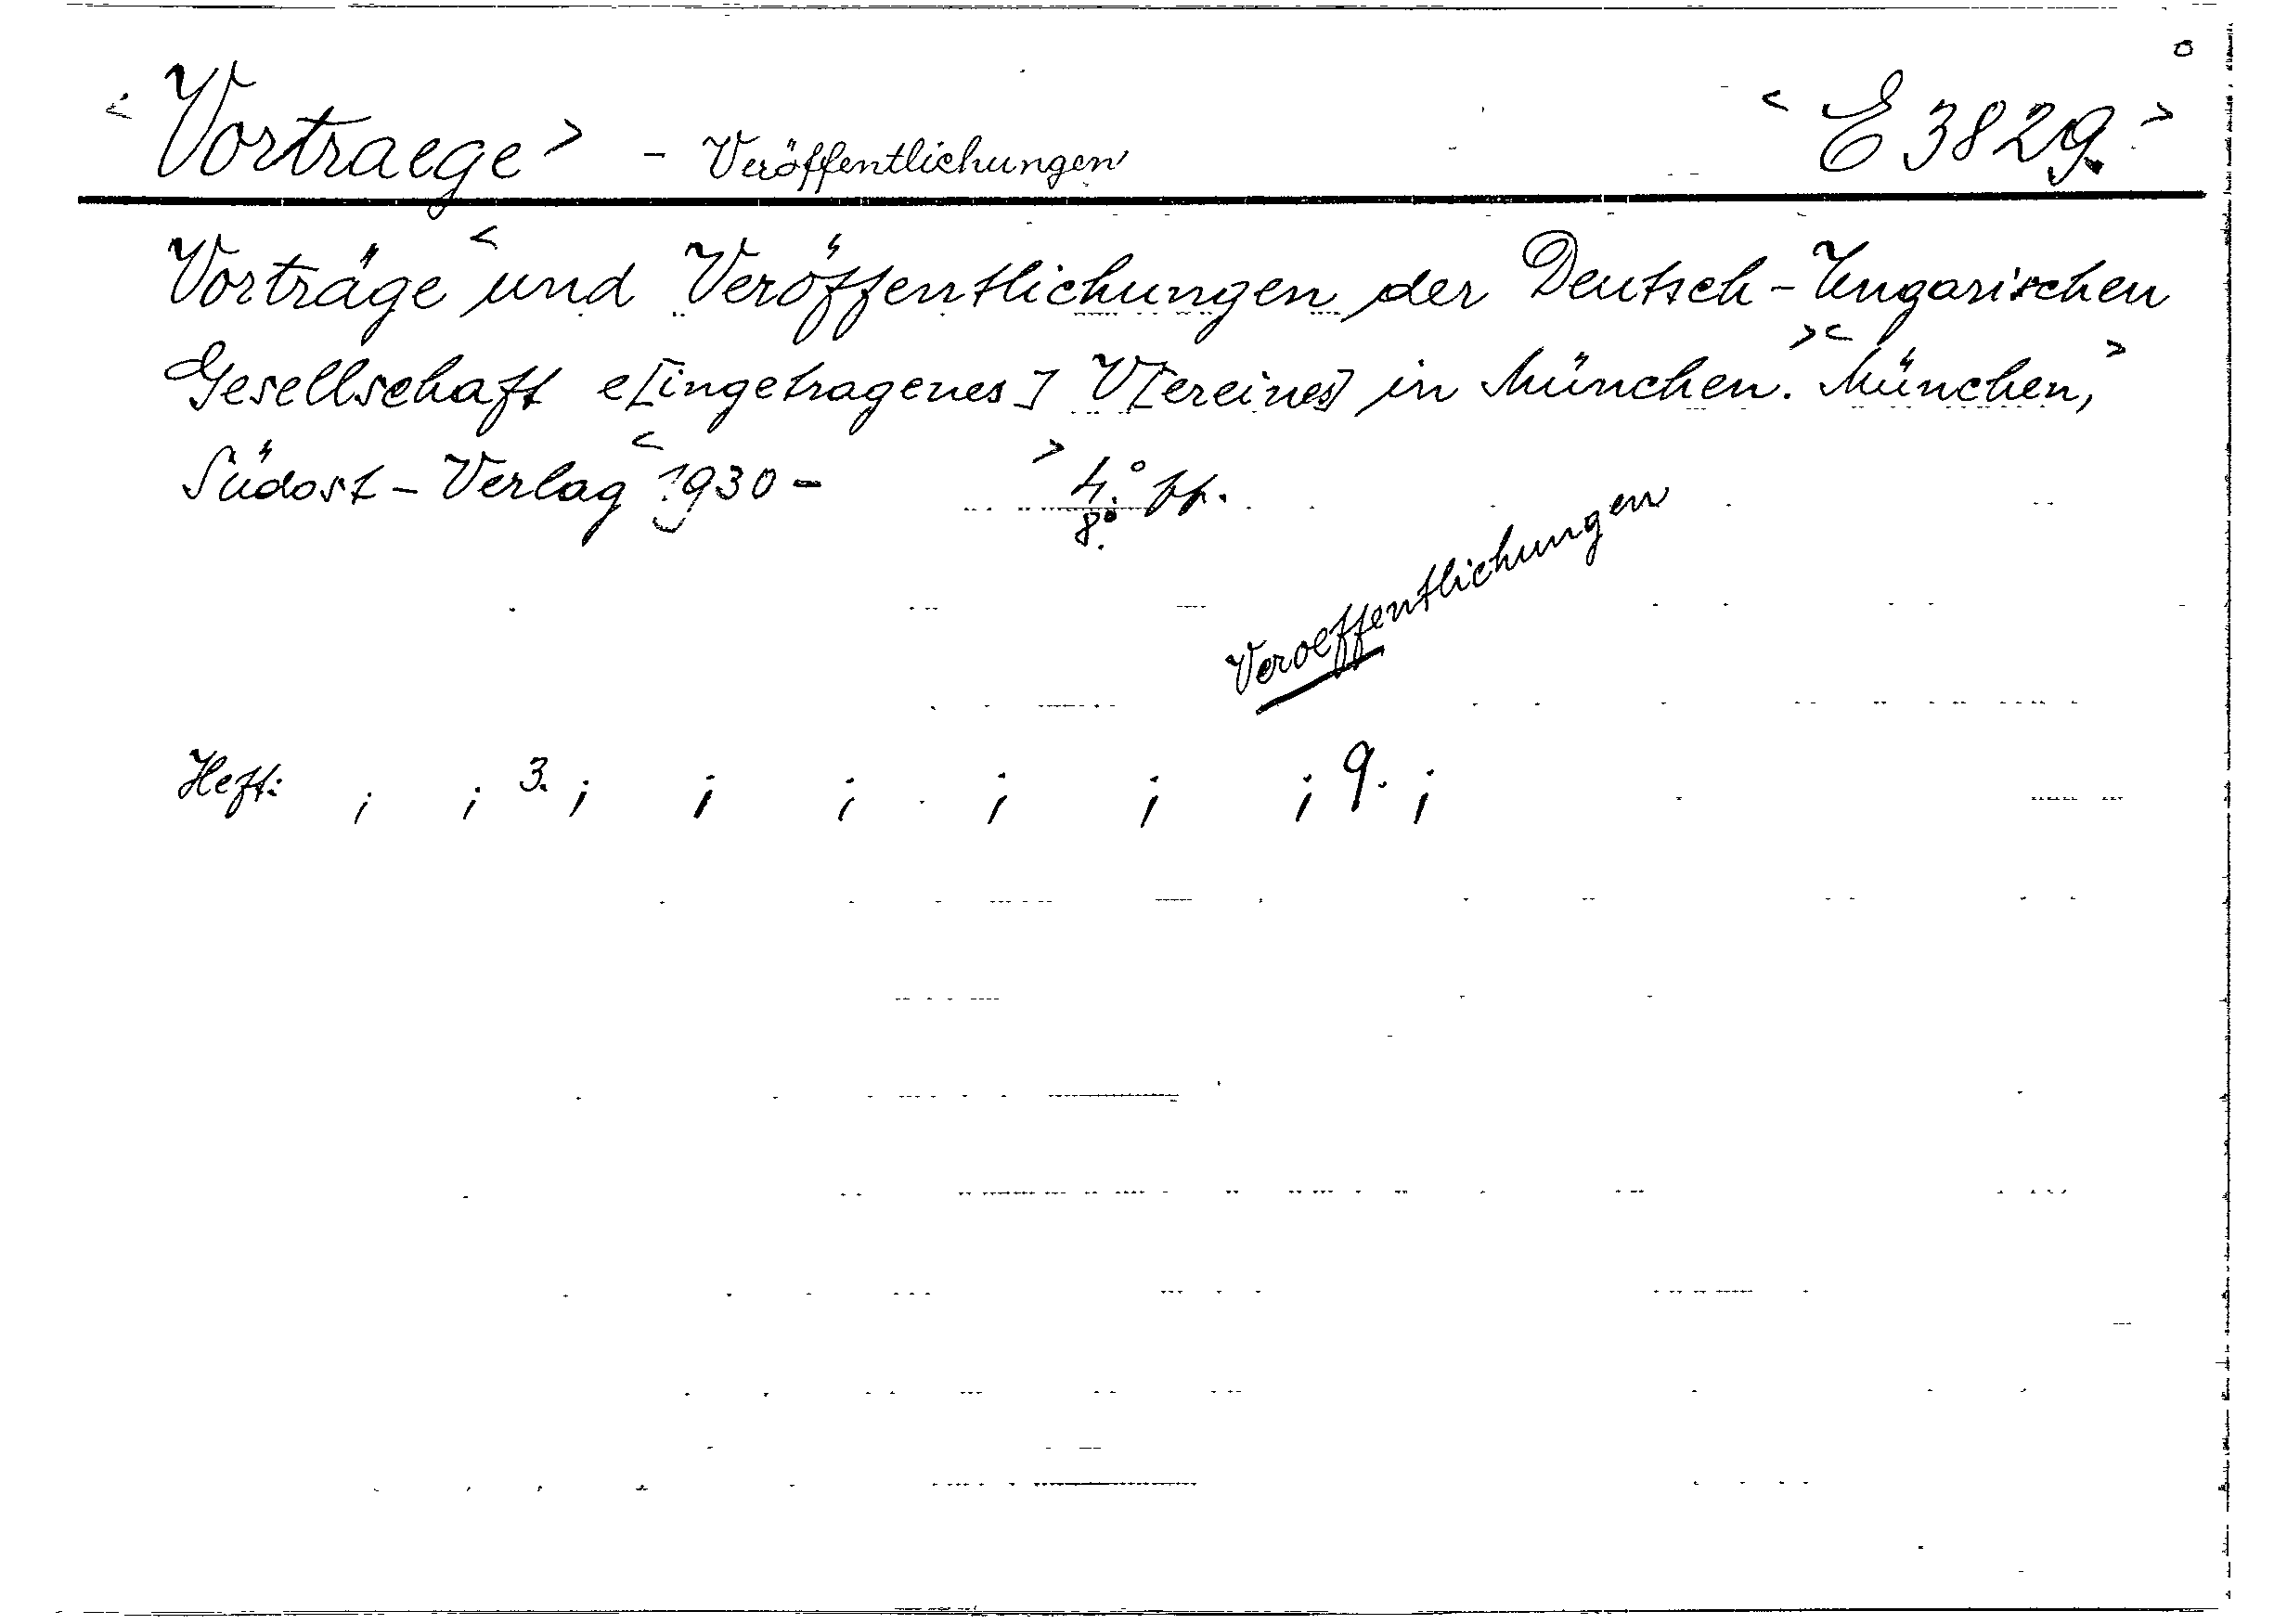 <Vortraege> - Veröffentlichungen <E 3829.>
Vorträge <und Veröffentlichungen der Deutsch-Ungarischen
Gesellschaft e[ingetragenes] V[ereines] in München.>< München,>
Südost-Verlag <1930- > 4.° pp.
8.°
Veroeffentlichungen
Heft: ; ; 3. ; ; ; ; ; ; 9. ;